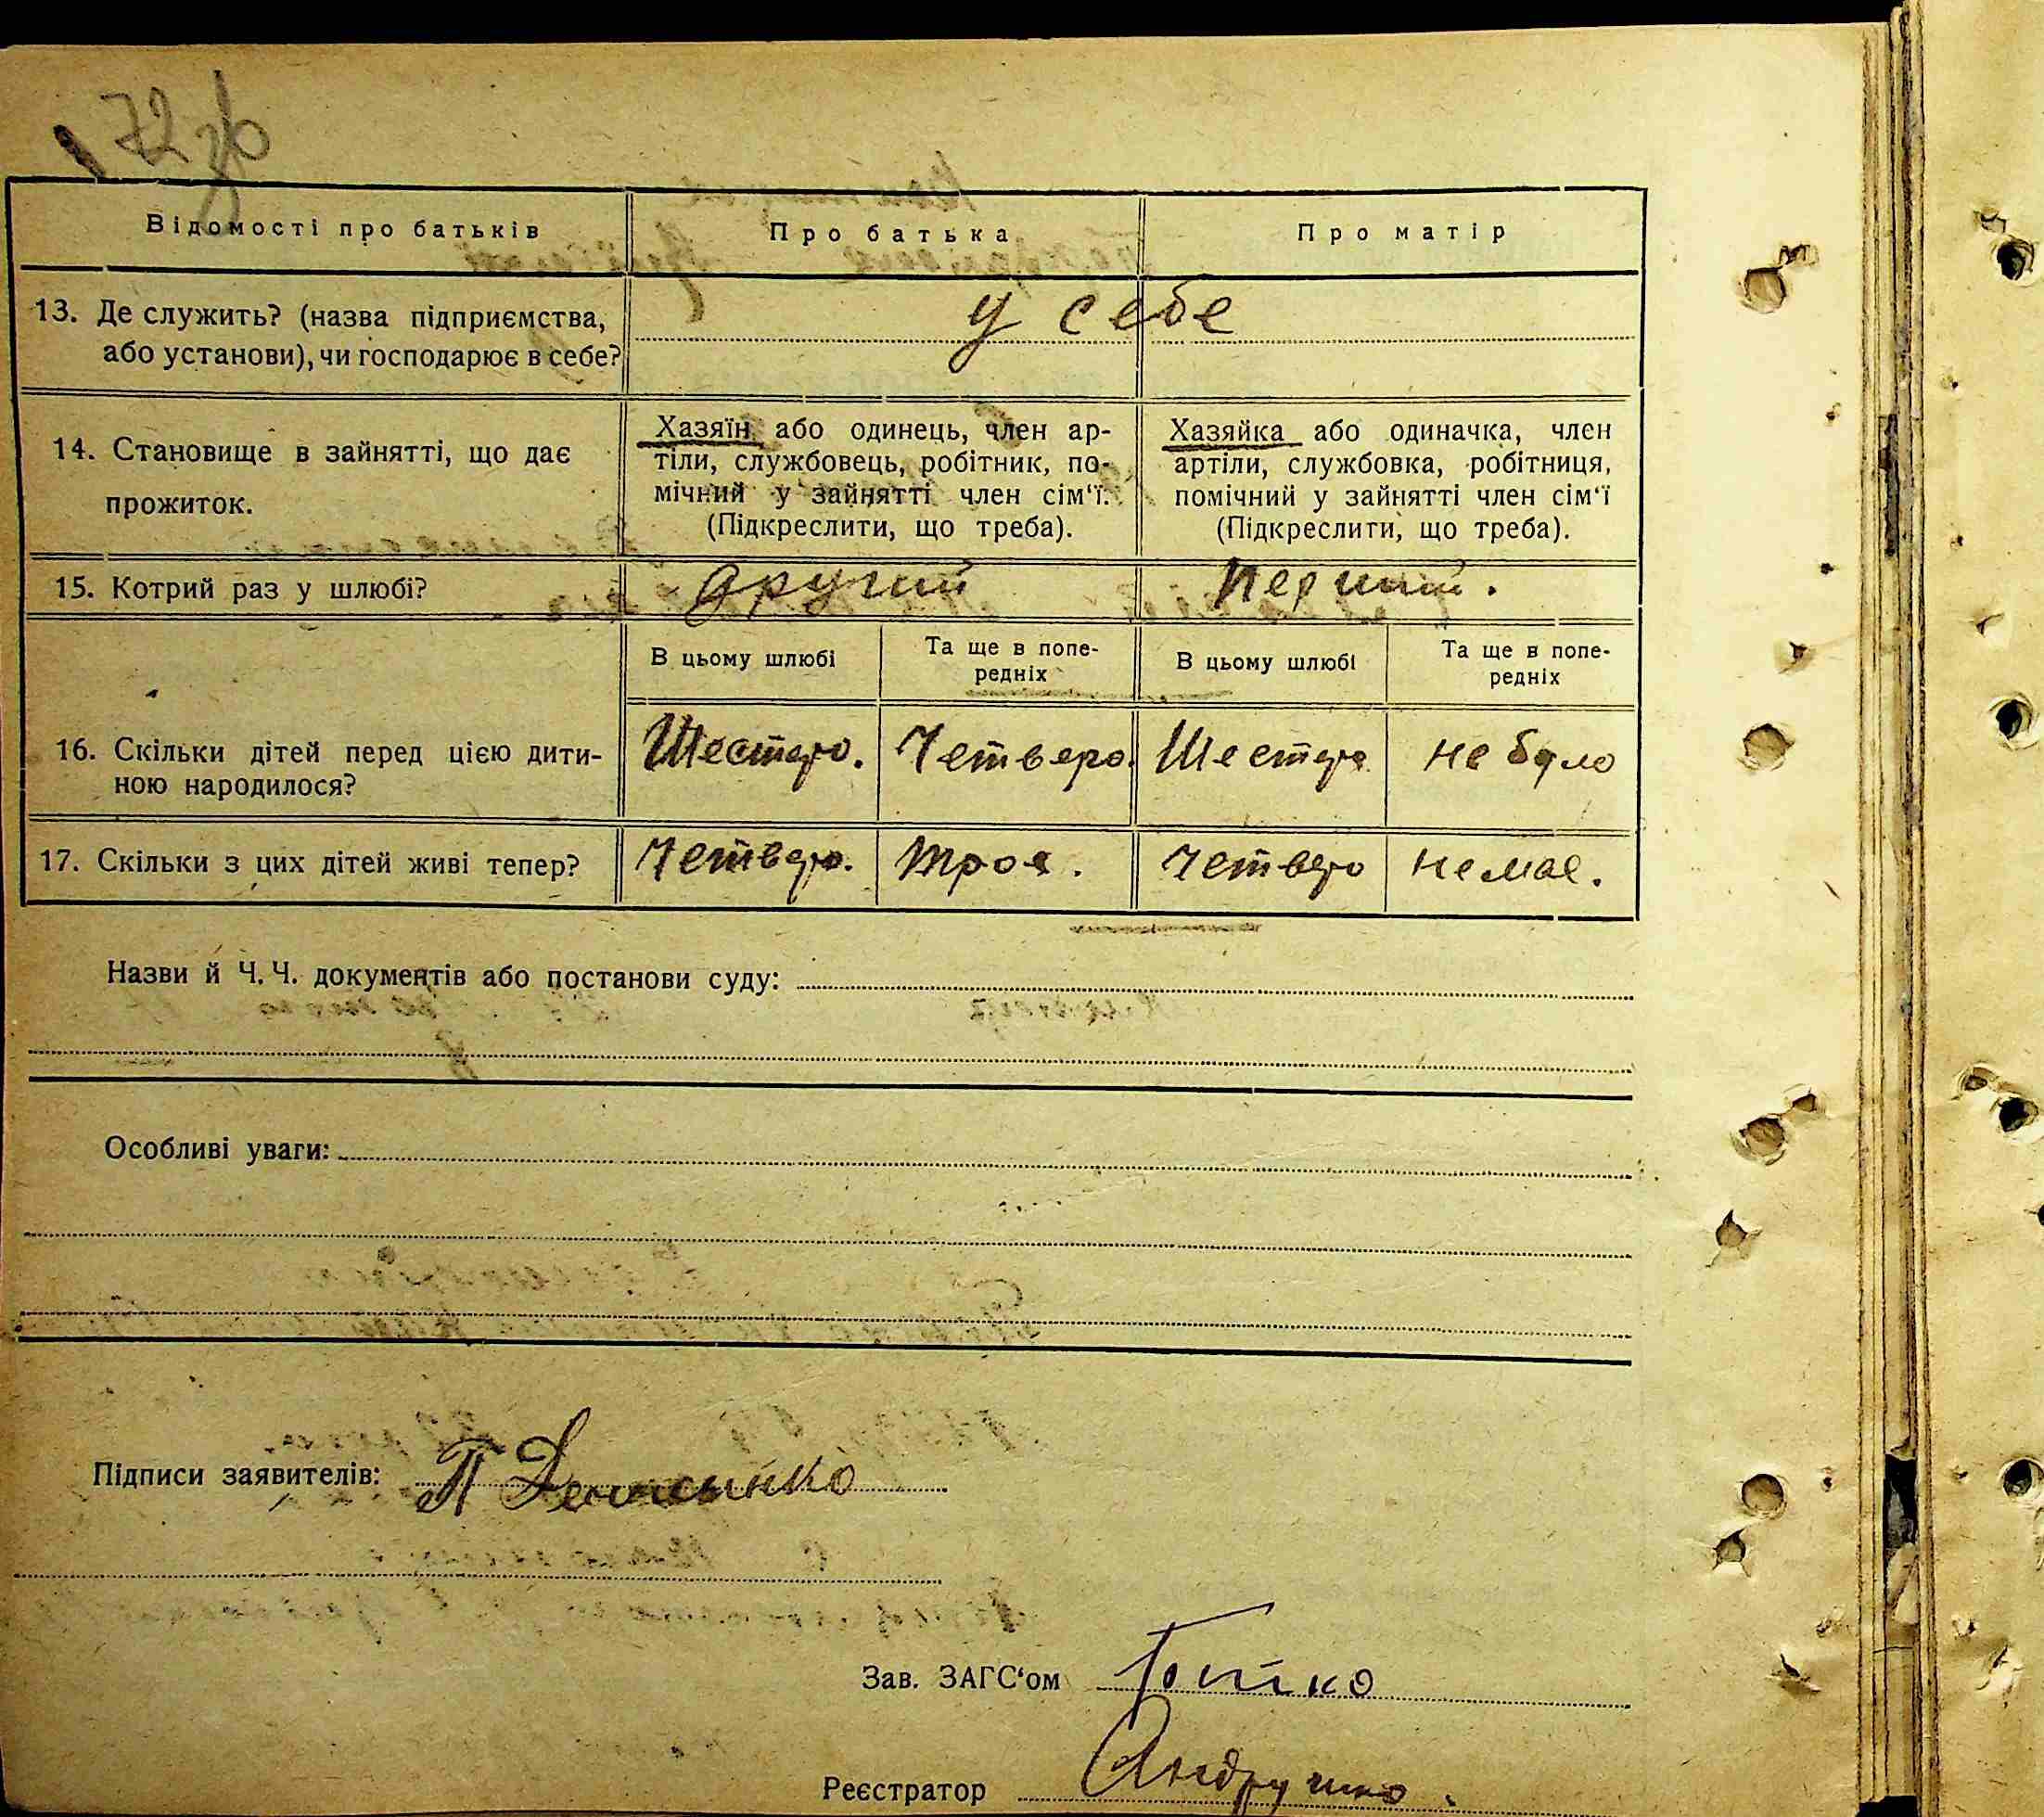 72зв
Відомості про батьків
Про батька
Про матір
13. Де служить? (назва підприємства,
або установи), чи господарює в себе?
у себе
14. Становище в зайнятті, що дає
прожиток.
Хазяїн або одинець, член ар-
тіли, службовець, робітник, по-
мічний у зайнятті член сім'ї.
(Підкреслити, що треба).
Хазяйка або одиначка, член
артіли, службовка, робітниця,
помічний у зайнятті член сім'ї
(Підкреслити, що треба).
15. Котрий раз у шлюбі?
другий
перший.
В цьому шлюбі
Та ще в попе-
редніх
В цьому шлюбі
Та ще в попе-
редніх
16. Скільки дітей перед цією дити-
ною народилося?
Шестеро.
Четверо.
Шестеро
не було
17. Скільки з цих дітей живі тепер?
Четверо.
троя.
Четверо
немає.
Назви й Ч.Ч. документів або постанови суду:
Особливі уваги:
Підписи заявителів: П
Зав. ЗАГС'ом Бойко
Реєстратор Андрушко.